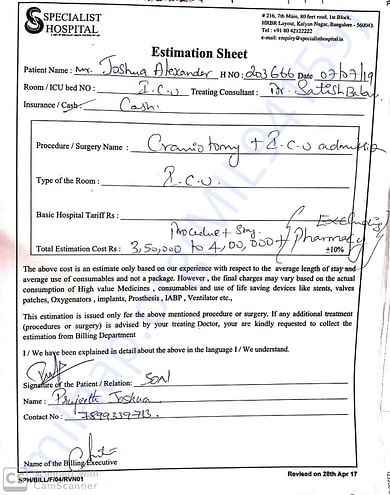 SPECIALIST
HOSPITAL
# 216, 7th Main, 80 feet road, 1st Block,
HRBR Layout, Kalyan Nagar, Bangalore - 560043.
Tel : +91 80 42122222
e-mail : enquiry@specialisthospital.in
Estimation Sheet
Patient Name : Mr. Joshua Alexander H NO : 203666 Date 07/07/19
Room / ICU bed NO : I.C.U Treating Consultant : Dr. Satish
Insurance / Cash : Cash.
Procedure / Surgery Name : Craniotomy + I.C.U admission
Type of the Room : I.C.U.
Basic Hospital Tariff Rs :
Procedure + Stay
Excluding
Pharmacy
Total Estimation Cost Rs : 3,50,000 to 4,00,000 + ±10%
The above cost is an estimate only based on our experience with respect to the average length of stay and
average use of consumables and not a package. However, the final charges may vary based on the actual
consumption of High value Medicines , consumables and use of life saving devices like stents, valves
patches, Oxygenators , implants, Prosthesis , IABP , Ventilator etc.,
This estimation is issued only for the above mentioned procedure or surgery. If any additional treatment
(procedures or surgery) is advised by your treating Doctor, your are kindly requested to collect the
estimation from Billing Department
I / We have been explained in detail about the above in the language I / We understand.
Signature of the Patient / Relation : SON
Name : Prujeeth Joshua
Contact No : 7899339713
Name of the Billing Executive
SPH/BILL/F/04/RVN01
Revised on 28th Apr 17
CS CamScanner